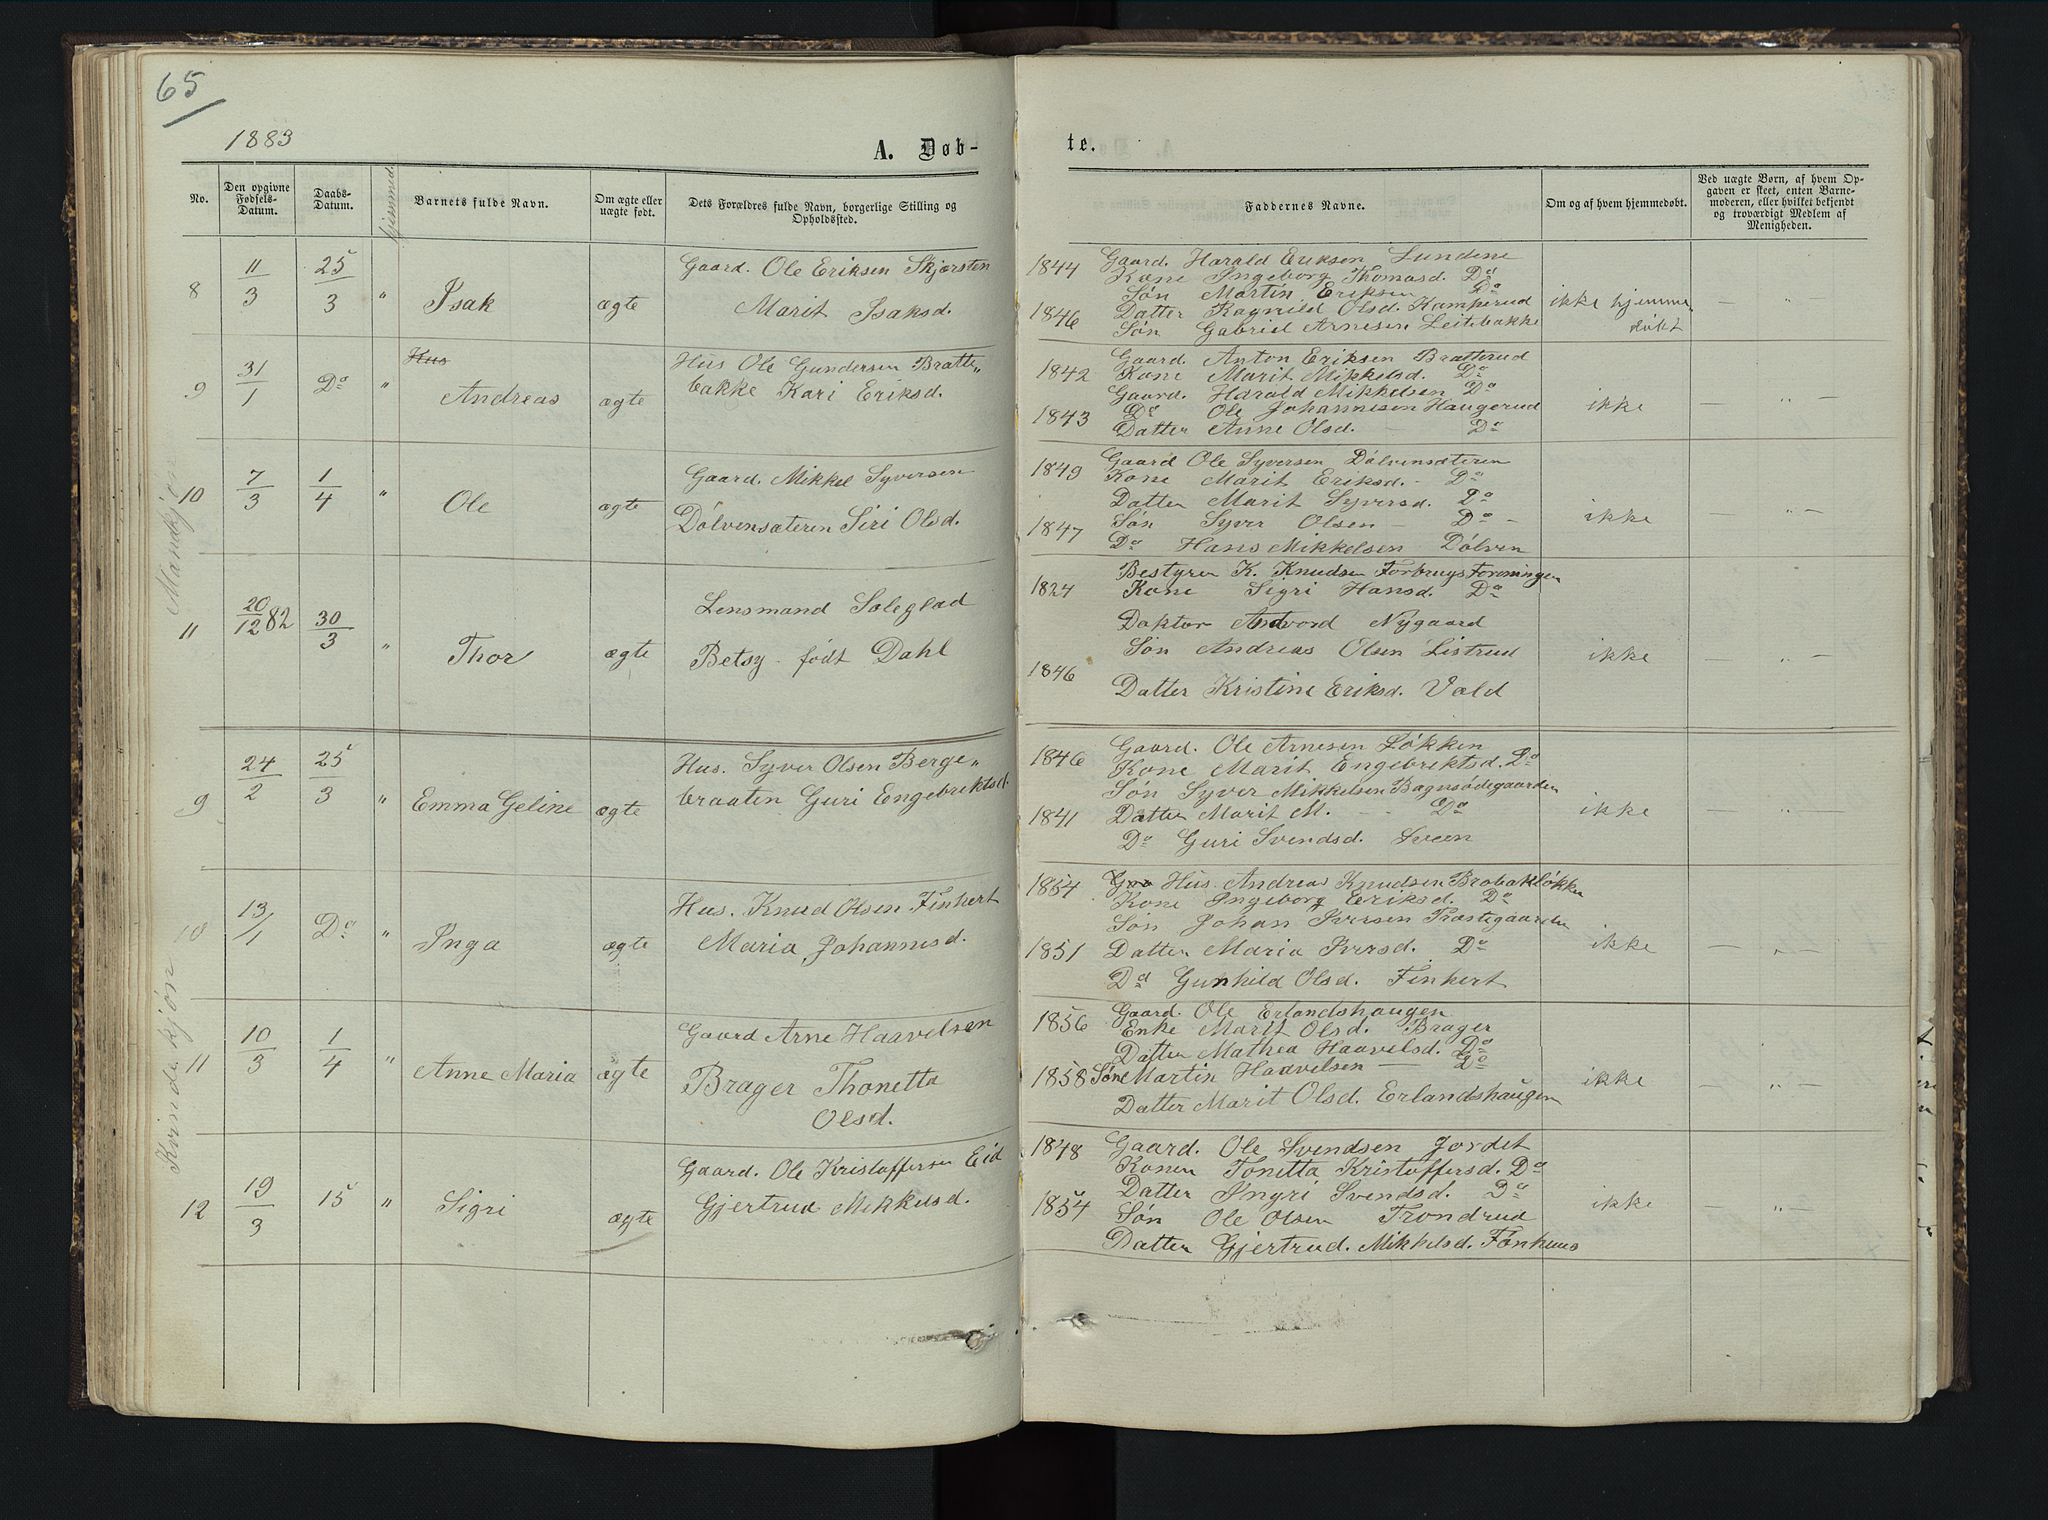 65
1883
A. Døb-
No.
Den opgivne Fødsels-Datum.
Daabs-Datum.
Barnets fulde Navn.
Om ægte eller uægte født.
Dets Forældres fulde Navn, borgerlige Stilling og Opholdssted.
Mandkjøn
8 11/3 25/3 " Isak ægte
Gaard. Ole Eriksen Skjørsten
Marit Isaksd.
Hus
9 31/1 Do " Andreas ægte
Hus Ole Gundersen Bratte„
bakke Kari Eriksd.
10 7/3 1/4 " Ole ægte
Gaard. Mikkel Syversen
Dölvensæteren Siri Olsd.
11 20/12 82 30/3 " Thor ægte
Lensmand Soleglad
Betsy født Dahl
Kvindekjøn
9 24/2 25/3 " Emma Geline ægte
Hus. Syver Olsen Berge„
braaten Guri Engebriktsd.
10 13/1 Do " Inga ægte
Hus. Knud Olsen Finhert
Maria Johannesd.
11 10/3 1/4 " Anne Maria ægte
Gaard Arne Haavelsen
Brager Thonetta
Olsd.
12 19/3 15 " Sigri ægte
Gaard. Ole Kristoffersen Eid
Gjertrud Mikkelsd.
te.
Faddernes Navne.
Om og af hvem hjemmedøbt.
Ved uægte Børn, af hvem Opgaven er skeet, enten Barnemoderen, eller hvilket bekjendt og troværdigt Medlem af Menigheden.
1844 Gaard. Harald Eriksen Lundene
Kone Ingeborg Thomasd. Do
Søn Martin Eriksen Do
1846 Datter Ragnild Olsd. Kamperud ikke hjemme
Søn Gabriel Arnesen Leitebakke døbt
Gaard. Anton Eriksen Bratterud
1842 Kone Marit Mikkelsd. Do
Gaard. Harald Mikkelsen Do
1843 Do Ole Johannesen Haugerud ikke
Datter Anne Olsd. Do
1849 Gaard Ole Syversen Dölvensæteren
Kone Marit Eriksd. - Do
Datter Marit Syversd. Do
1847 Søn Syver Olsen - Do - ikke
Do Hans Mikkelsen Dölven
Bestyrer K. Knudsen Forbrugsforeningen
1824 Kone Sigri Hansd. Do
Doktor Andvord Nygaard
Søn Andreas Olsen Listrud ikke
1846
Datter Kristine Eriksd. Vold
1846 Gaard. Ole Arnesen Løkken
Kone Marit Engebriktsd. Do
Søn Syver Mikkelsen Bagnsødegaarden
1841 Datter Marit M. - - Do ikke
Do Guri Svendsd. Sveen
1854 Hus. Andreas Knudsen Brobakløkken
Kone Ingeborg Eriksd. Do
Søn Johan Iversen Præstegaarden
1851 Datter Maria Iversd. Do ikke
Do Gunhild Olsd. Finhert
1856 Gaard. Ole Erlandshaugen
Enke Marit Olsd. Brager
Datter Mathea Haavelsd. Do
1858 Søn Martin Haavelsen - Do ikke
Datter Marit Olsd. Erlandshaugen
1848 Gaard. Ole Svendsen Jordet
Konen Tonetta Kristoffersd. Do
Datter Ingri Svendsd. Do
1854 Søn Ole Olsen Trondrud ikke
Datter Gjertrud. Mikkelsd. Fønhuus